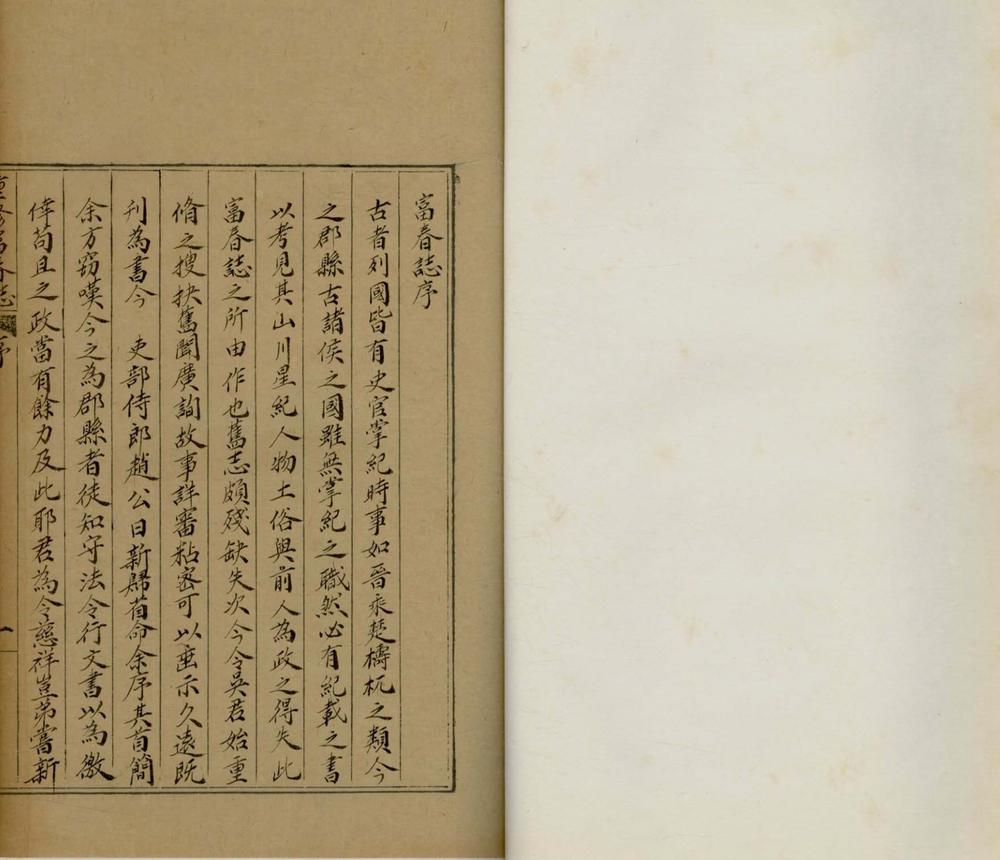 富春誌序
古者列國皆有史官掌紀時事如晉乘楚檮杌之類今
之郡縣古諸侯之國雖無掌紀之職然必有紀載之書
以考見其山川星紀人物土俗與前人為政之得失此
富春誌之所由作也舊志頗殘缺失次今令吳君始重
脩之搜抉舊聞廣詢故事詳審粘密可以垂示久遠既
刊為書今　吏部侍郎趙公日新歸首命余序其首簡
余方竊嘆今之為郡縣者徒知守法令行文書以為徼
倖苟且之政當有餘力及此耶君為令慈祥豈弟嘗新
重修富春志　序　一